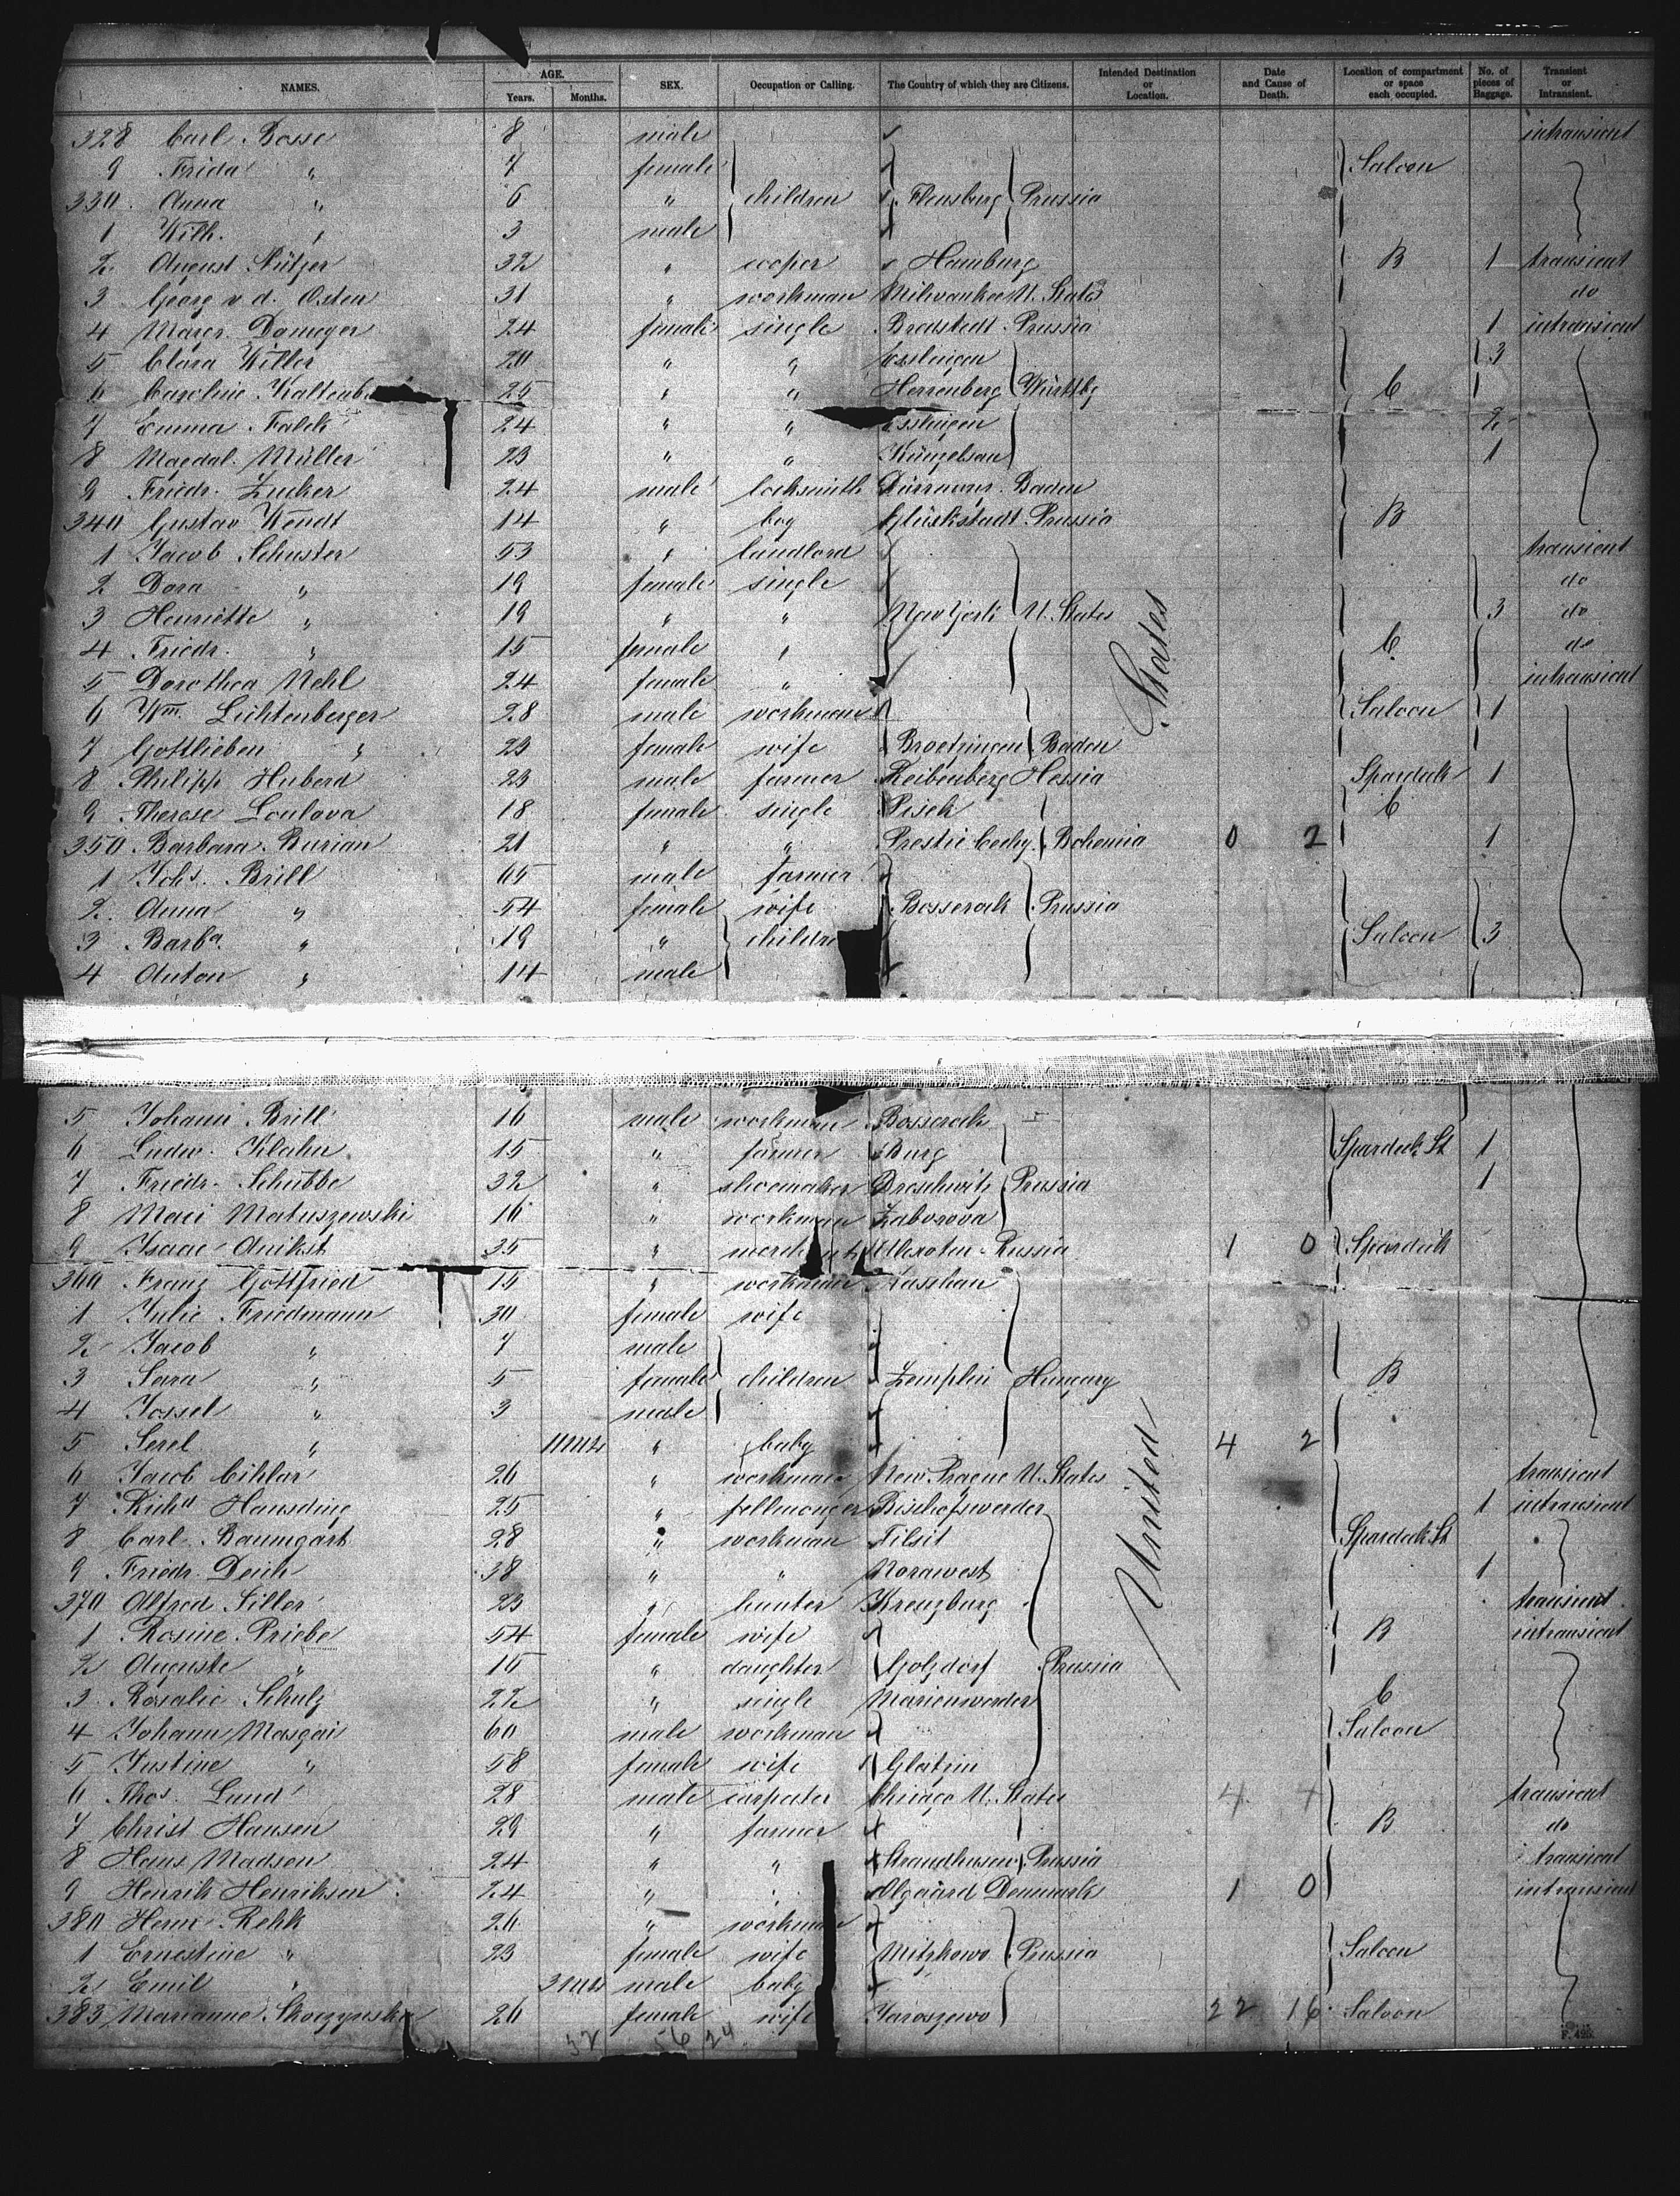 NAMES. AGE. Years. Months. SEX. Occupation or Calling. The Country of which they are Citizens. Intended Destination or Location. Date and Cause of Death. Location of compartment or space each occupied. No. of pieces of Baggage. Transient or Intransient.
328 Carl Bosse 8 male intransient
9 Frida " 7 female Saloon
330. Anna " 6 " children Flensburg Prussia
1 Wilh. " 3 male
2. August Nützer 32 " cooper Hamburg B 1 transient
3 Georg v. d. Osten 31 " workman Milwaukee U. States do
4 Margr. Dameyer 24 female single Bredstedt Prussia 1 intransient
5 Clara Witler 20 " " Esslingen 3
6 Caroline 25 " " Herrenberg Württbg C 1
7 Emma Falch 24 " " Esslingen 2
8 Magdal. Müller 23 " " Künzelsau 1
9 Friedr. Zucker 24 male locksmith Baden
340 Gustav Wendt 14 " boy Glückstadt Prussia B
1 Jacob Schuster 53 " landlord transient
2 Dora " 19 female single do
3 Henriette " 19 " " New York U. States 3 do
4 Friedr. " 15 female " C do
5 Dorothea Nehl 24 female " intransient
6 Wm. Lichtenberger 28 male workman Saloon 1
7 Gottlieben " 23 female wife Broetzingen Baden
8 Philipp Huberd 23 male farmer Reibenberg Hessia Spardeck 1
9 Therese Loulova 18 female single Pisek C
350 Barbara Burian 21 " " Prestic Cechy Bohemia 0 2 1
1 Johs. Brill 65 male farmer
2. Anna " 54 female wife Bosserode Prussia
3 Barba. " 19 " Saloon 3
4 Anton " 14 male
States
5 Johann Brill 16 male workman Bosserode
6 Ludw. Klahn 15 " farmer Burg Spardeck St 1
7 Friedr. Schübbe 32 " shoemaker Dreschwitz Prussia 1
8 Maci Matuszewski 16 " workman Zaborova
9 Isaac Anikst 35 " merchant Alexoten Russia 1 0 Spardeck
360 Franz Gottfried 15 " workman Kaschau
1 Julie Friedmann 30 female wife
2 Jacob " 7 male
3 Sara " 5 female children Zemplin Hungary B
4 Jossel " 3 male
5 Serel " 11 mts " baby 4 2
6 Jacob Cihlar 26 " workman New Prague U. States transient
7 Richd Hansding 25 " fellmonger Bischofswerder 1 intransient
8 Carl Baumgart 28 " workman Tilsit Spardeck St
9 Friedr. Deich 38 " " Norawest 1
370 Alfred Siller 23 " hunter Kreuzburg transient
1 Rosine Priebe 54 female wife B intransient
2 Auguste " 15 " daughter Golzdorf Prussia
3 Rosalie Schulz 22 " single Marienwerder C
4 Johann Masgai 60 male workman Saloon
5 Justine " 58 female wife Glatzin
6 Thos. Lund 28 male carpenter Chicago U. States 4 4 transient
7 Christ Hansen 29 " farmer B do
8 Hans Madsen 24 " " Strandhusen Prussia transient
9 Henrik Henriksen 24 " Olgaard Denmark 1 0 intransient
380 Herm. Rehk 26 " workman
1 Ernestine " 23 female wife Mitzkowo Prussia Saloon
2 Emil " 3 mts male baby
383 Marianne Skoczynska 26 female wife Jaroszewo 22 16 Saloon
United
32 56 24
F. 425.